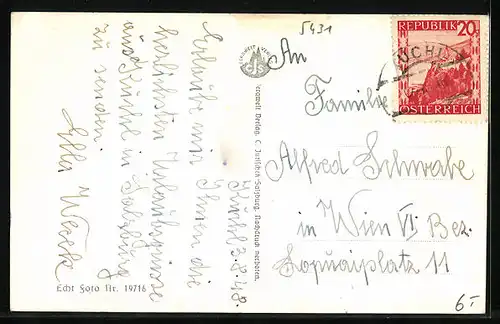 5431
Kuchl 3.8.48.
Erlaube mir Ihnen die
herzlichsten Urlaubsgrüsse
aus Kuchl in Salzburg
zu senden.
Ella
Echt Foto Nr. 19716
Verlag C. Jurischek Salzburg. Nachdruck verboten.
REPUBLIK 20
ÖSTERREICH
KUCHL
An
Familie
Alfred Schwabe
in Wien VI. Bez.
Loquaiplatz 11
6-